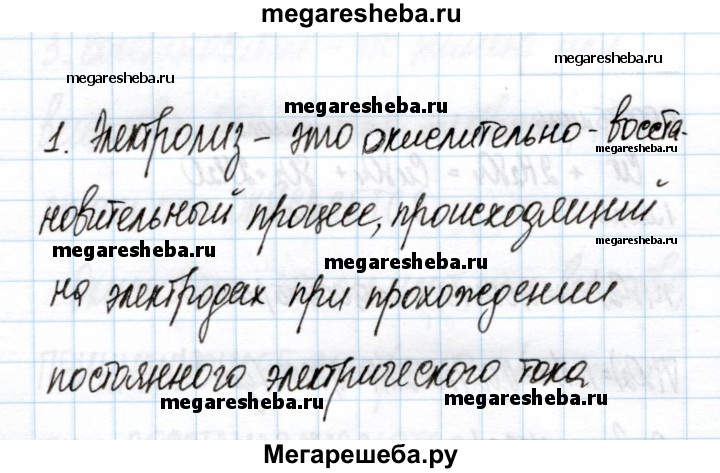 megaresheba.ru
megaresheba.ru
megaresheba.ru
megaresheba.ru
1. Электролиз – это окислительно-восста-
megaresheba.ru
новительный процесс, происходящий
megaresheba.ru
megaresheba.ru
megaresheba.ru
на электродах при прохождении
постоянного электрического тока
megaresheba.ru
megaresheba.ru
Мегарешеба.ру